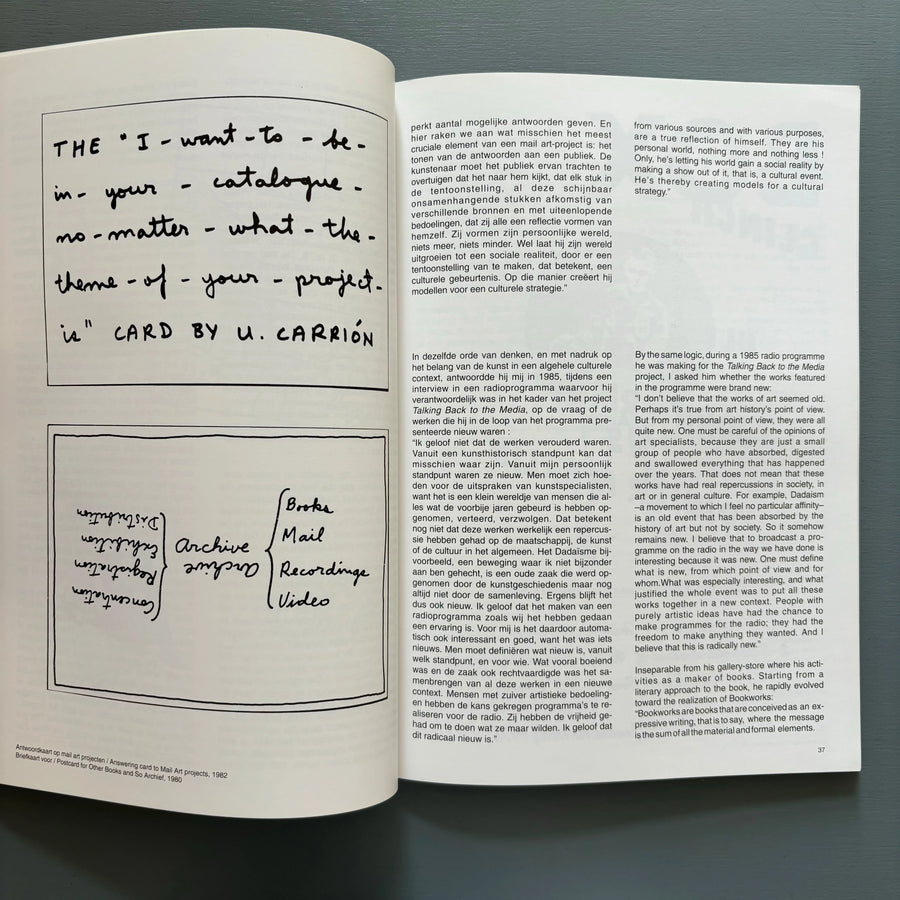 THE "I - want - to - be -
in - your - catalogue -
no - matter - what - the -
theme - of - your - project -
is" CARD BY U. CARRIÓN
Books
Mail
Recordings
Video
Archive
Archive
Concentration
Registration
Exhibition
Distribution
Antwoordkaart op mail art projecten / Answering card to Mail Art projects, 1982
Briefkaart voor / Postcard for Other Books and So Archief, 1980
perkt aantal mogelijke antwoorden geven. En
hier raken we aan wat misschien het meest
cruciale element van een mail art-project is: het
tonen van de antwoorden aan een publiek. De
kunstenaar moet het publiek ervan trachten te
overtuigen dat het naar hem kijkt, dat elk stuk in
de tentoonstelling, al deze schijnbaar
onsamenhangende stukken afkomstig van
verschillende bronnen en met uiteenlopende
bedoelingen, dat zij alle een reflectie vormen van
hemzelf. Zij vormen zijn persoonlijke wereld,
niets meer, niets minder. Wel laat hij zijn wereld
uitgroeien tot een sociale realiteit, door er een
tentoonstelling van te maken, dat betekent, een
culturele gebeurtenis. Op die manier creëert hij
modellen voor een culturele strategie."
In dezelfde orde van denken, en met nadruk op
het belang van de kunst in een algehele culturele
context, antwoordde hij mij in 1985, tijdens een
interview in een radioprogramma waarvoor hij
verantwoordelijk was in het kader van het project
Talking Back to the Media, op de vraag of de
werken die hij in de loop van het programma pre-
senteerde nieuw waren :
"Ik geloof niet dat de werken verouderd waren.
Vanuit een kunsthistorisch standpunt kan dat
misschien waar zijn. Vanuit mijn persoonlijk
standpunt waren ze nieuw. Men moet zich hoe-
den voor de uitspraken van kunstspecialisten,
want het is een klein wereldje van mensen die al-
les wat de voorbije jaren gebeurd is hebben op-
genomen, verteerd, verzwolgen. Dat betekent
nog niet dat deze werken werkelijk een repercus-
sie hebben gehad op de maatschappij, de kunst
of de cultuur in het algemeen. Het Dadaïsme bij-
voorbeeld, een beweging waar ik niet bijzonder
aan ben gehecht, is een oude zaak die werd op-
genomen door de kunstgeschiedenis maar nog
altijd niet door de samenleving. Ergens blijft het
dus ook nieuw. Ik geloof dat het maken van een
radioprogramma zoals wij het hebben gedaan
een ervaring is. Voor mij is het daardoor automa-
tisch ook interessant en goed, want het was iets
nieuws. Men moet definiëren wat nieuw is, vanuit
welk standpunt, en voor wie. Wat vooral boeiend
was en de zaak ook rechtvaardigde was het sa-
menbrengen van al deze werken in een nieuwe
context. Mensen met zuiver artistieke bedoeling-
en hebben de kans gekregen programma's te re-
aliseren voor de radio. Zij hebben de vrijheid ge-
had om te doen wat ze maar wilden. Ik geloof dat
dit radicaal nieuw is."
from various sources and with various purposes,
are a true reflection of himself. They are his
personal world, nothing more and nothing less !
Only, he's letting his world gain a social reality by
making a show out of it, that is, a cultural event.
He's thereby creating models for a cultural
strategy."
By the same logic, during a 1985 radio programme
he was making for the Talking Back to the Media
project, I asked him whether the works featured
in the programme were brand new:
"I don't believe that the works of art seemed old.
Perhaps it's true from art history's point of view.
But from my personal point of view, they were all
quite new. One must be careful of the opinions of
art specialists, because they are just a small
group of people who have absorbed, digested
and swallowed everything that has happened
over the years. That does not mean that these
works have had real repercussions in society, in
art or in general culture. For example, Dadaism
–a movement to which I feel no particular affinity–
is an old event that has been absorbed by the
history of art but not by society. So it somehow
remains new. I believe that to broadcast a pro-
gramme on the radio in the way we have done is
interesting because it was new. One must define
what is new, from which point of view and for
whom.What was especially interesting, and what
justified the whole event was to put all these
works together in a new context. People with
purely artistic ideas have had the chance to
make programmes for the radio; they had the
freedom to make anything they wanted. And I
believe that this is radically new."
Inseparable from his gallery-store where his acti-
vities as a maker of books. Starting from a
literary approach to the book, he rapidly evolved
toward the realization of Bookworks:
"Bookworks are books that are conceived as an ex-
pressive writing, that is to say, where the message
is the sum of all the material and formal elements.
37